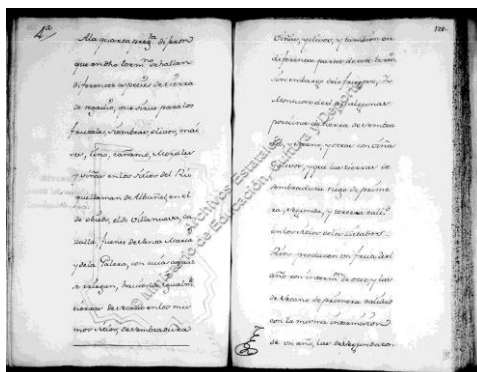 4ª
A la quarta preg.ta dijeron
que en dho term.no se hallan
diferentes especies de tierra
de regadio, que sirve para los
frutales, sembrar, olivos, mai
ces, lino, cañamo, Morales
y viñas en los sitios del Rio
que llaman de Albuñel, en el
de obledo, el de Villanueva, ca
zalla, fuente de Santa Maria
y de la Palera, con cuias aguas
se riegan, havia
tierra de secano en los mis
mos sitios, de sembradura
120
viñas, y olivos, y tambien en
diferentes partes de este term.no
sin embargo de lo fragoso, y
Montuoso de el ai algunas
porcion de tierra de sembra
da, y secano, y otras con viña
olivos, y que las tierras de
sembradura riego de prime
ra, segunda, y tercera calid.
en los sitios
Rios producen un fruto al
año con interm.on de otro y las
de secano de primera calidad
con la misma intermision
de un año, las de segunda con
© Ministerio de Educación, Cultura y Deporte
Archivos Estatales